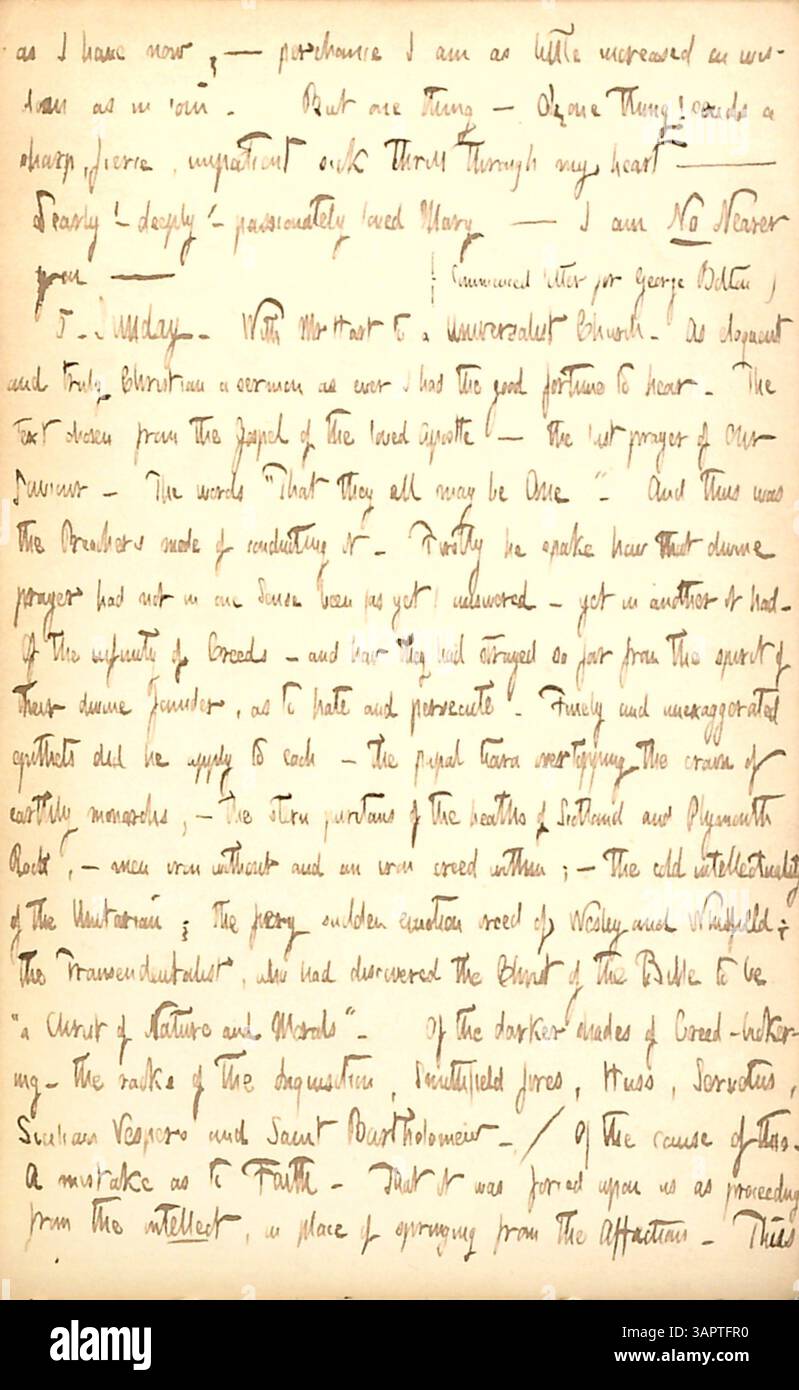 as I have now ; — perchance I am as little increased in wis-
dom as in coin . But one thing — Oh, one thing ! sends a
sharp, fierce, impatient sick thrill through my heart ———
Dearly ! – deeply ! – passionately loved Mary — I am No Nearer
you —— ( Commenced letter for George Bolton )
5 . Sunday . With Mr Hart to a Universalist Church . As eloquent
and truly Christian a sermon as ever I had the good fortune to hear . The
text chosen from the Gospel of the loved apostle — the last prayer of Our
Saviour – The words "That they all may be One " . And thus was
the Preachers mode of conducting it . Firstly he spake how that divine
prayer had not in one sense been (as yet) answered – yet in another it had .
Of the infinity of Creeds – and how they had strayed so far from the spirit of
their divine founder, as to hate and persecute . Finely and unexaggerated
epithets did he apply to each – the papal tiara overtopping the crown of
earthly monarchs ; – the stern puritans of the heaths of Scotland and Plymouth
Rock , – men iron without and an iron creed within ; – the cold intellectuality
of the Unitarian ; the fiery sudden emotion creed of Wesley and Whitfield ;
the Transendentalist, who had discovered the Christ of the Bible to be
"a Christ of Nature and Morals" . Of the darker shades of Creed-bicker-
ing – the racks of the Inquisition , Smithfield fires , Huss , Servetus ,
Sicilian Vespers and Saint Bartholomew – / Of the cause of this .
A mistake as to Faith – That it was forced upon us as proceeding
from the intellect, in place of springing from the Affections – This
alamy
Image ID: 3APTFR0
www.alamy.com